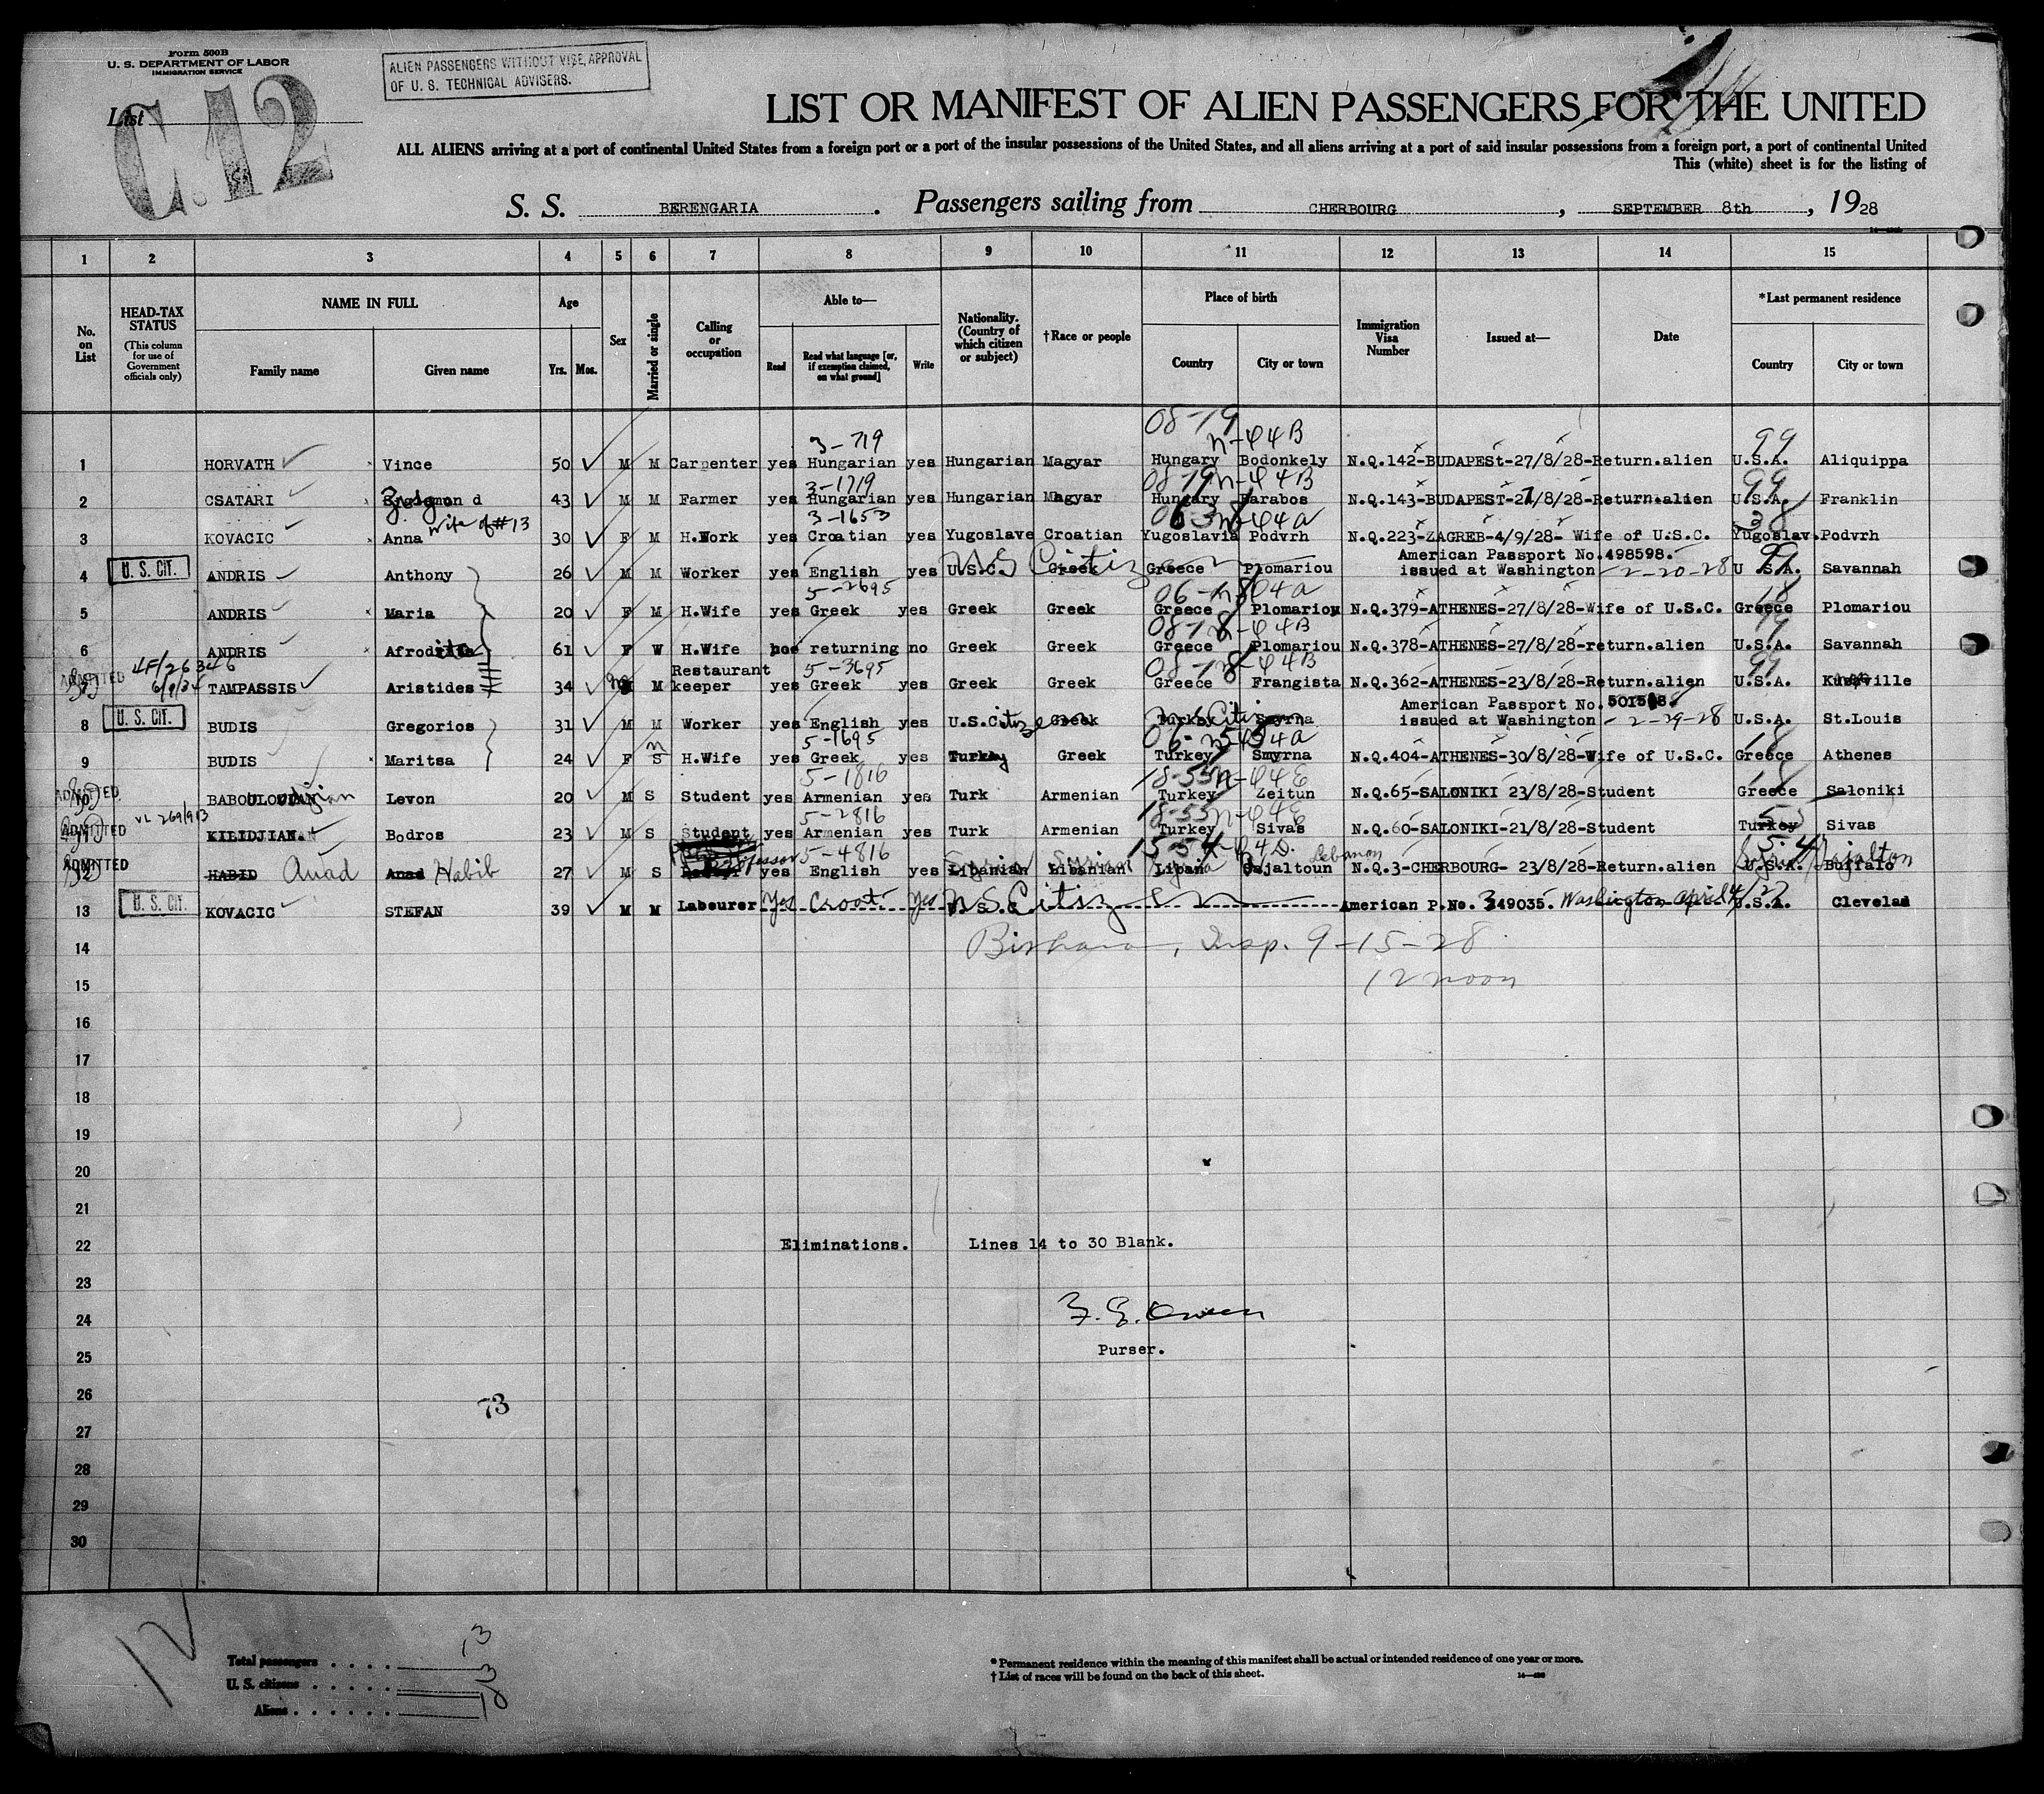 Form 500B
U. S. DEPARTMENT OF LABOR
IMMIGRATION SERVICE
ALIEN PASSENGERS WITHOUT VISE, APPROVAL
OF U. S. TECHNICAL ADVISERS.
List
C.12
LIST OR MANIFEST OF ALIEN PASSENGERS FOR THE UNITED
ALL ALIENS arriving at a port of continental United States from a foreign port or a port of the insular possessions of the United States, and all aliens arriving at a port of said insular possessions from a foreign port, a port of continental United
This (white) sheet is for the listing of
S. S. BERENGARIA. Passengers sailing from CHERBOURG, SEPTEMBER 8th, 1928
1 2 3 4 5 6 7 8 9 10 11 12 13 14 15
No. on List
HEAD-TAX STATUS (This column for use of Government officials only)
NAME IN FULL
Family name Given name
Age
Yrs. Mos.
Sex
Married or single
Calling or occupation
Able to—
Read Read what language [or, if exemption claimed, on what ground] Write
Nationality. (Country of which citizen or subject)
†Race or people
Place of birth
Country City or town
Immigration Visa Number
Issued at—
Date
*Last permanent residence
Country City or town
08-19
3-719 n-44B 99
1 HORVATH Vince 50 M M Carpenter yes Hungarian yes Hungarian Magyar Hungary Bodonkely N.Q.142-BUDAPEST-27/8/28-Return.alien U.S.A. Aliquippa
3-1719 08-19 n-44B 99
2 CSATARI 43 M M Farmer yes Hungarian yes Hungarian Magyar Hungary Barabos N.Q.143-BUDAPEST-27/8/28-Return.alien U.S.A. Franklin
wife of #13 3-1653 n-44a
3 KOVACIC Anna 30 F M H.Work yes Croatian yes Yugoslave Croatian Yugoslavia Podvrh N.Q.223-ZAGREB-4/9/28- Wife of U.S.C. Yugoslav. Podvrh
American Passport No.498598.
4 U. S. CIT. ANDRIS Anthony 26 M M Worker yes English yes U.S.C. US Citizen Greek Greece Plomariou issued at Washington - 2-20-28 U.S.A. Savannah
5-2695
5 ANDRIS Maria 20 F M H.Wife yes Greek yes Greek Greek Greece Plomariou N.Q.379-ATHENES-27/8/28-Wife of U.S.C. Greece Plomariou
08-18 n-44B
6 ANDRIS Afrodita 61 F W H.Wife returning no Greek Greek Greece Plomariou N.Q.378-ATHENES-27/8/28-return.alien U.S.A. Savannah
5-3695 08-18 n-44B 99
ADMITTED 6/9/34 TAMPASSIS Aristides 34 M Restaurant keeper yes Greek yes Greek Greek Greece Frangista N.Q.362-ATHENES-23/8/28-Return.alien U.S.A.
American Passport No.
8 U. S. CIT. BUDIS Gregorios 31 M M Worker yes English yes U.S.Citizen Greek Turkey Smyrna issued at Washington - 2-29-28 U.S.A. St.Louis
5-1695 m
9 BUDIS Maritsa 24 F S H.Wife yes Greek yes Turkey Greek Turkey Smyrna N.Q.404-ATHENES-30/8/28-Wife of U.S.C. Greece Athenes
5-1816 18-55 n-44E 18
ADMITTED 10 Levon 20 M S Student yes Armenian yes Turk Armenian Turkey Zeitun N.Q.65-SALONIKI 23/8/28-Student Greece Saloniki
5-2816 18-55 n-44E
ADMITTED 11 KILIDJIAN. Bodros 23 M S Student yes Armenian yes Turk Armenian Turkey Sivas N.Q.60-SALONIKI-21/8/28-Student Turkey Sivas
5-4816 Lebanon
ADMITTED 12 HABID Auad Auad Habib 27 M S yes English yes Libanian Syrian Libanian Syrian Liban Gajaltoun N.Q.3-CHERBOURG- 23/8/28-Return.alien U.S.A. Buffalo
13 U. S. CIT. KOVACIC STEFAN 39 M M Labourer yes Croat. yes U.S.Citizen American P.No. 349035. Washington April 4/27 U.S.A. Clevelad
14 , Insp. 9-15-28
15 12 noon
16
17
18
19
20
21
22 Eliminations. Lines 14 to 30 Blank.
23
24 F. G. Owen
25 Purser.
26
73
27
28
29
30
12
Total passengers
U. S. citizens
Aliens
13
* Permanent residence within the meaning of this manifest shall be actual or intended residence of one year or more.
† List of races will be found on the back of this sheet.